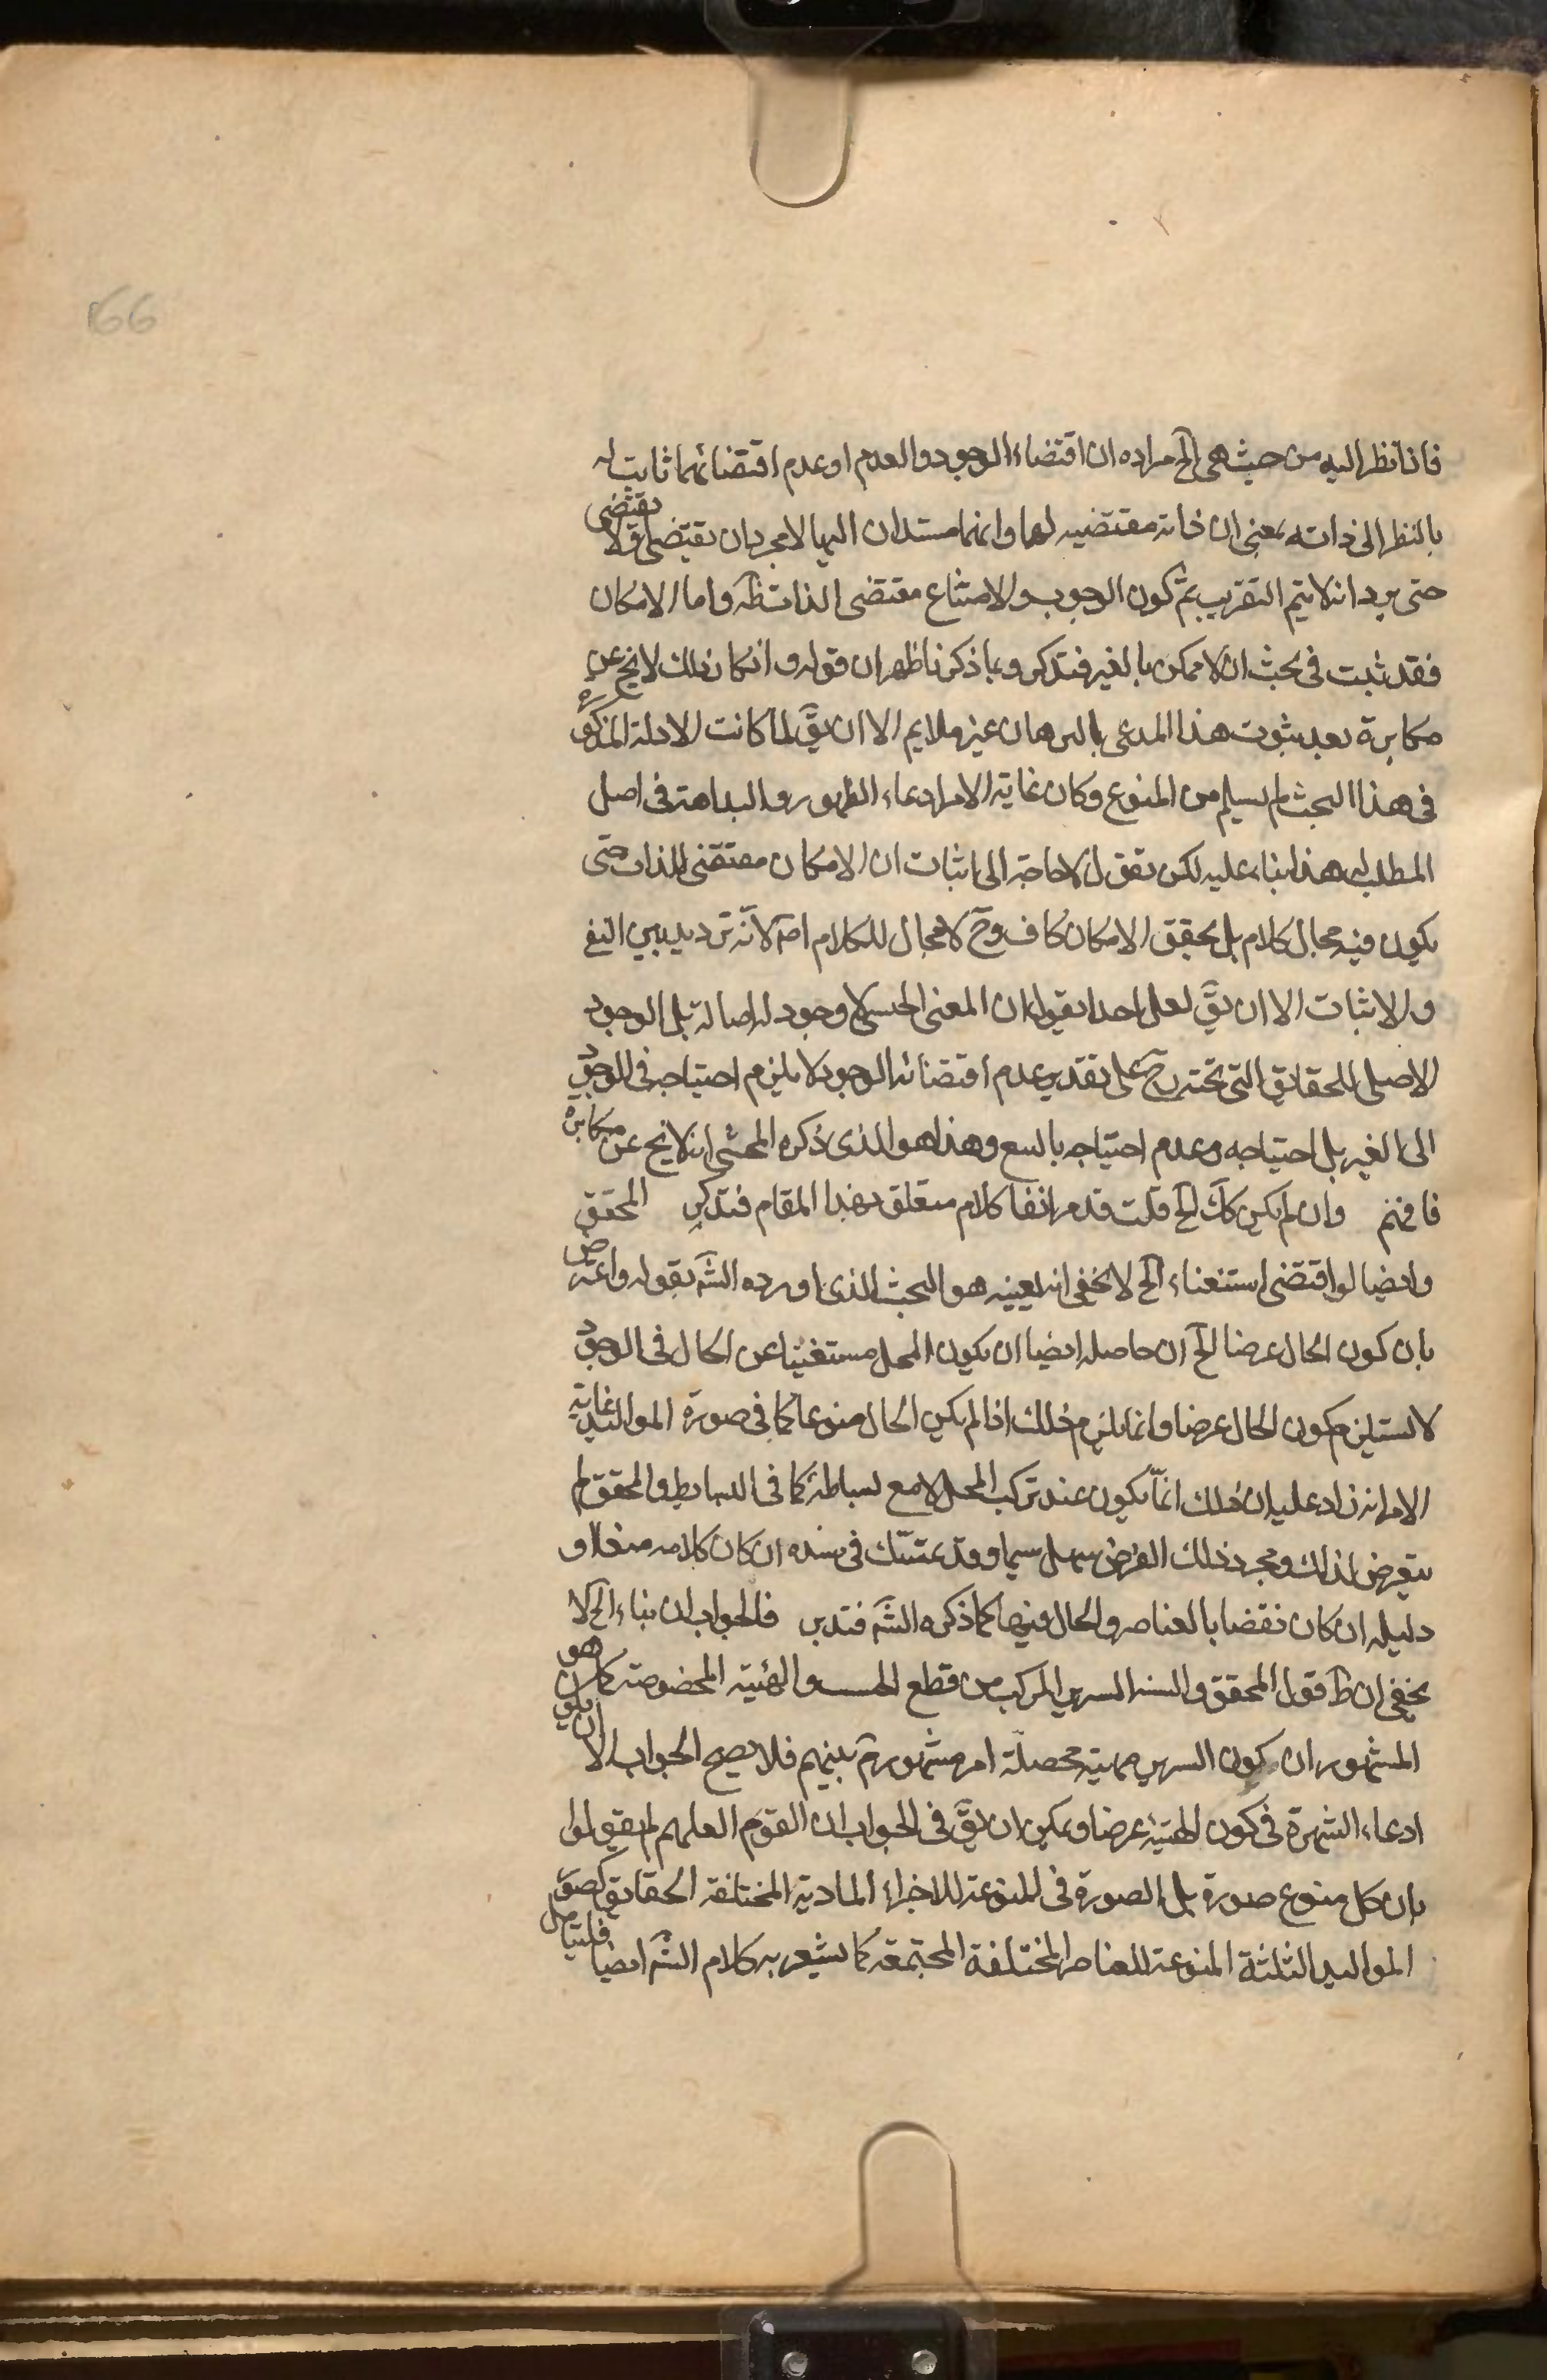 166
فاذا نظر اليه من حيث هى الخ مراده ان اقتضاء الوجود والعدم او عدم اقتضائهما ثابت له
بالنظر الى ذاته بمعنى ان ذاته مقتضيه لها وانهما مستندان اليها لا مجرد ان يقتضى او لا يقتضى
حتى يرد انه لا يتم التقريب ثم كون الوجوب والامتناع مقتضى الذات ظَه واما الامكان
فقد ثبت فى بحث ان لا ممكن بالغير فتذكر وبما ذكرنا ظهر ان قوله وانكار ذلك لا يخ عن
مكابرة بعد ثبوت هذا المدعى بالبرهان غير ملايم الا ان يقَّ لما كانت الادلة المذكوره
فى هذا البحث لم يسلم من المنوع وكان غاية الامر ادعاء الظهور والبداهة فى اصل
المطلب هذا بناء عليه لكن نقول لا حاجة الى اثبات ان الامكان مقتضى الذات حتى
يكون فيه مجال كلام بل تحقق الامكان كاف وحَ لا مجال للكلام اصلا لانّه ترديد بين النفى
والاثبات الا ان يقَّ لعل احدا يقول ان المعنى الجنسى لا وجود له اصالة بل الوجود
الاصلى للحقايق التى تحته وحَ على تقدير عدم اقتضائه الوجود لا يلزم احتياجه فى الوجود
الى الغير بل احتياجه وعدم احتياجه بالتبع وهذا هو الذى ذكره المحشى انه لا يخ عن مكابره
فافهم وان لم يكن كَكَ الخ قلت قد مر انفا كلام متعلق بهذا المقام فتذكر المحقق
وايضا لو اقتضى استغناء الخ لا يخفى انه بعينه هو البحث الذى اورده الشَه بقوله واعترض
بان كون الحال عرضا الخ ان حاصله ايضا ان يكون المحل مستغنيا عن الحال فى الوجود
لا يستلزم كون الحال عرضا وانما يلزم ذلك اذا لم يكن الحال منوعا كما فى صورة المواليد غاية
الامر انه زاد عليه ان ذلك انّما يكون عند تركب المحل لا مع بساطته كما فى البسايط والمحقق لم
يتعرض لذلك ومجرد ذلك الفرض سهل سيما وقد تمسّك فى سنده ان كان كلامه منعا او
دليله ان كان نقضا بالعناصر والحال فيها كما ذكره الشَه فتدبر فالجواب ان بناء الخ لا
يخفى ان ظَ قول المحقق والسند السرير المركب من قطع الخشب والهيئة المخصوصة كما هو
المشهور ان كون السرير مهية محصلة امر مشهور بينهم فلا يصح الجواب الا ان يكون
ادعاء الشهرة فى كون الهيئة عرضا ويمكن ان يقَّ فى الجواب ان القوم لعلهم لم يقولوا
بان كل منوع صورة بل الصورة فى المنوعة للاجزاء المادية المختلفة الحقايق كصور
المواليد الثلثة المنوعة للعناصر المختلفة المجتمعة كما يشعر به كلام الشَه ايضا فليتامل